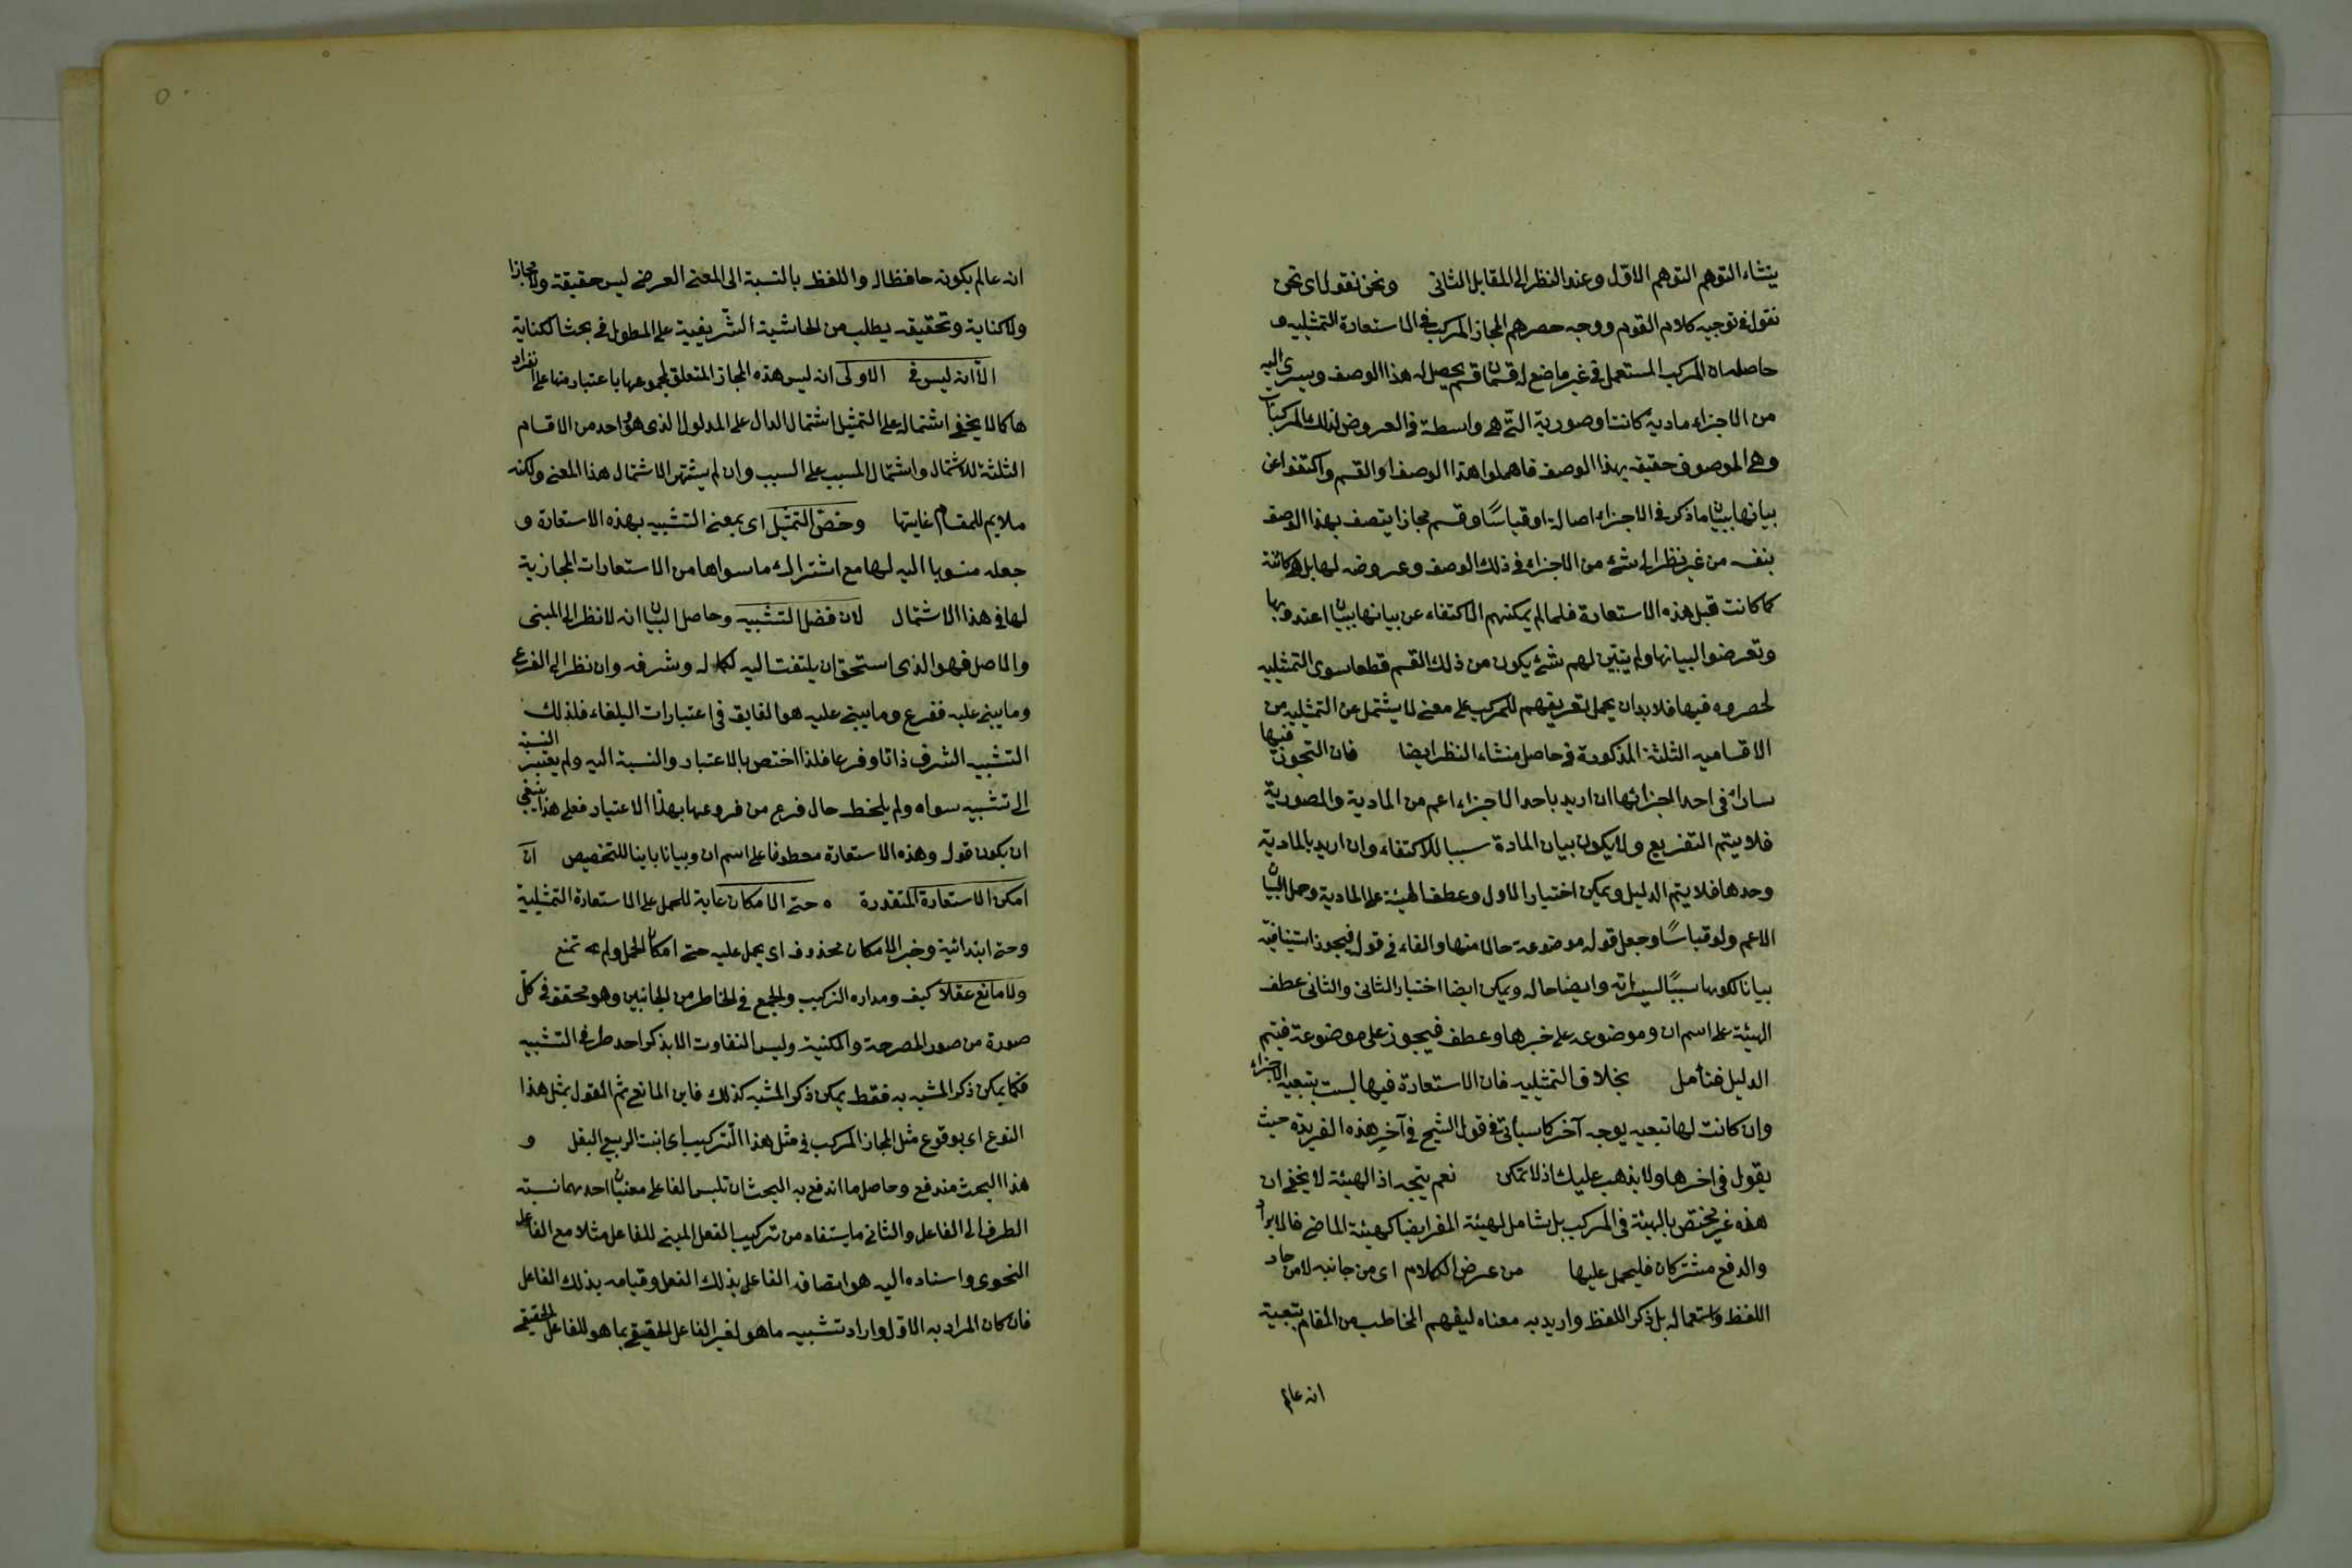 ينشاء التوهم التوهم الاول وعند النظر الى المقابل الثانى ونحن نقول اى نحن
نقول فى توجيه كلام القوم ووجه حصرهم المجاز المركب فى الاستعارة التمثيلية و
حاصله ان المركب المستعمل فى غير ما ضع له قسمان قسم يحصل له هذا الوصف ويسرى اليه
من الاجزاء مادية كانت او صورية التى هى واسطة فى العروض لذلك المركبات
وهى الموصوف حقيقه بهذا الوصف فاهملوا هذا الوصف او القسم واكتفوا عن
بيانها ببيان ما ذكر فى الاجزاء اصالة او قياسًا وقسم مجازا يتصف بهذا الوصف
بنفسه من غير نظر الى شئ من الاجزاء فى ذلك الوصف وعروضه لها بل هى كائنة
كما كانت قبل هذه الاستعارة فلما لم يمكنهم الاكتفاء عن بيانها ببيان اعتدوا بها
وتعرضوا لبيانها ولم يتبيّن لهم شئ يكون من ذلك القسم قطعا سوى التمثيليه
لحصروه فيها فلا بد ان يحمل تعريفهم للمركب على معنى لا يشتمل عن التمثيليه من
الاقسامية الثلثة المذكورة فى حاصل منشاء النظر ايضا فان التجوز فيها
سار فى احد اجزائها ان اريد باحد الاجزاء اعم من المادية والصورية
فلا يتم التفريع ولا يكون بيان المادة سببا للاكتفاء وان اريد بالمادية
وحدها فلا يتم الدليل ويمكن اختيار الاول وعطف الهيئة على المادية وحمل البيان
الاعم ولو قياسًا وجعل قوله موضوعة حالا منها والفاء فى قوله فيجوز استينافية
بيانا لكونها سببًا لسيراته وايضا حاله ويمكن ايضا اختيار الثانى والثانى عطف
الهيئة على اسم ان وموضوعه على خبرها وعطف فيجوز على موضوعة فيتم
الدليل فتأمل بخلاف التمثيليه فان الاستعارة فيها ليست بتبعيه الاجزاء
وان كانت لها تبعيه بوجه آخر كما سيأتى فى قول الشيخ فى آخر هذه الفريدة حيث
يقول فى اخرها ولا يذهب عليك اذ لا تمكن نعم يتجه اذ الهيئة لا يخفى ان
هذه غير مختص بالهيئة فى المركب بل شامل لهيئة المفرد ايضا كهيئة الماضى فالايراد
والدفع مشتركان فليحمل عليها من عرض الكلام اى من جانبه لا من حاد
اللفظ واستعماله بل ذكر اللفظ واريد به معناه ليفهم المخاطب من المقام بتبعية
انه عالم
انه عالم بكونه حافظا له واللفظ بالنسبة الى المعنى العرضى ليس حقيقة ولا مجازا
ولا كناية وتحقيقه يطلب من الحاشية الشريفية على المطول فى بحث الكناية
الا انه ليس فى الاولى انه ليس هذه المجاز المتعلق بمجموعها باعتبار منها على انفراد
ها كما لا يخفى اشتماله على التمثيل اشتمال الدال على المدلول الذى هو واحد من الاقسام
الثلثة للاشتمال واشتمال المسبب على السبب وان لم يشتهر الاشتمال هذا المعنى ولكنه
ملايم للمقام غايتها وخص التمثيل اى بمعنى التشبيه بهذه الاستعارة و
جعله منسوبا اليه لها مع اشتراك ما سواها من الاستعارات المجازية
لها فى هذا الاشتمال لان فضل التشبيه وحاصل البيان انه لا نظر الى المبنى
والاصل فهو الذى استحق ان يلتفت اليه لكماله وشرفه وان نظر الى الفرع
وما يبنى عليه ففرع وما يبنى عليه هو الفايق فى اعتبارات البلغاء فلذلك
التشبيه الشرف ذاتا وفرعا فلذا اختص بالاعتبار والنسبة اليه ولم يعتبر النسبة
الى تشبيه سواه ولم يلحظ حال فرع من فروعها بهذا الاعتبار فعلى هذا ينبغى
ان يكون قوله وهذه الاستعارة معطوفا على اسم ان وبيانا باينا للتخصيص ان
امكن الاستعارة المتقدرة ه حتى الامكان غاية للحمل على الاستعارة التمثيلية
وحتى ابتدائية وخبر الامكان محذوف اى يحمل عليه حتى امكان الحمل ولم يمتنع
ولا مانع عقلا كيف ومداره التركيب والجمع فى الخاطر من الجانبين وهو محقق فى كلّ
صورة من صور المصرحة والمكنية وليس التفاوت الا بذكر احد طرفى التشبيه
فكما يمكن ذكر المشبه به فقط يمكن ذكر المشبه كذلك فاين المانع ثم القول بمثل هذا
النوع اى بوقوع مثل المجاز المركب فى مثل هذا التركيب اى انبت الربيع البقل و
هذا البحث مندفع وحاصل ما اندفع به البحث ان تلبس الفاعل معنيان احدهما نسبته
الطرف الى الفاعل والثانى ما يستفاد من تركيب الفعل المبنى للفاعل مثلا مع الفاعل
النحوى واسناده اليه هو اتصافه الفاعل بذلك الفعل وقيامه بذلك الفاعل
فان كان المراد به الاول واراد تشبيه ما هو لغير الفاعل الحقيقى بما هو للفاعل الحقيقى